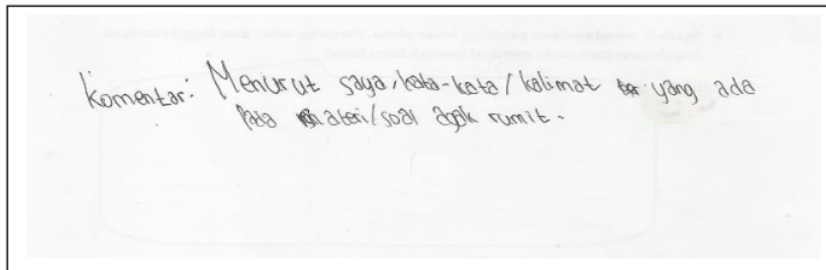 Komentar: Menurut saya, kata-kata / kalimat yang ada
pada materi/soal agak rumit.